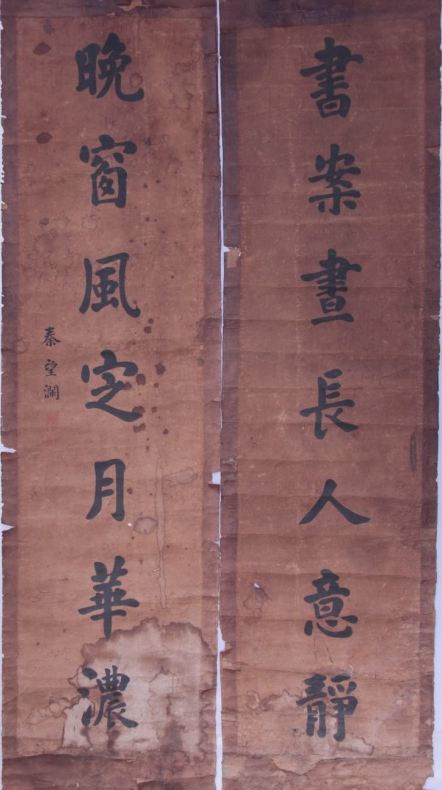 書案晝長人意靜
晚窗風定月華濃
秦望瀾